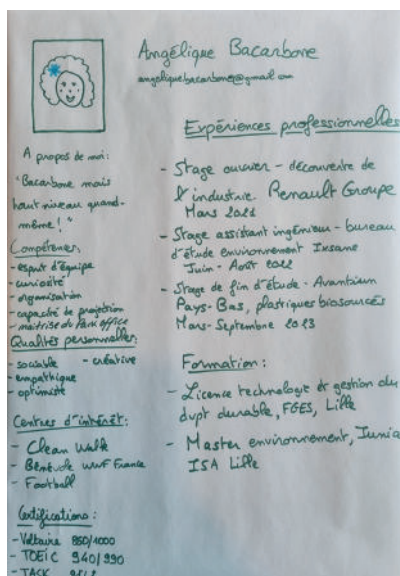 Angélique Bacarbone
angeliquebacarbone@gmail.com
A propos de moi:
"Bacarbone mais
haut niveau quand-
même!"
Compétences:
- esprit d'équipe
- curiosité
- organisation
- capacité de projection
- maîtrise du Pack office
Qualités personnelles:
- sociable - créative
- empathique
- optimiste
Centres d'intérêt:
- Clean Walk
- Bénévole WWF France
- Football
Certifications:
- Voltaire 850/1000
- TOEIC 940/990
- TACK
Expériences professionnelles
- Stage ouvrier - découverte de
l'industrie. Renault Groupe
Mars 2021
- Stage assistant ingénieur - bureau
d'étude environnement
Juin - Août 2022
- Stage de fin d'étude - Avantium
Pays-Bas, plastiques biosourcés
Mars-Septembre 2023
Formation:
- Licence technologie et gestion du
dvpt durable, FGES, Lille
- Master environnement, Junia
ISA Lille